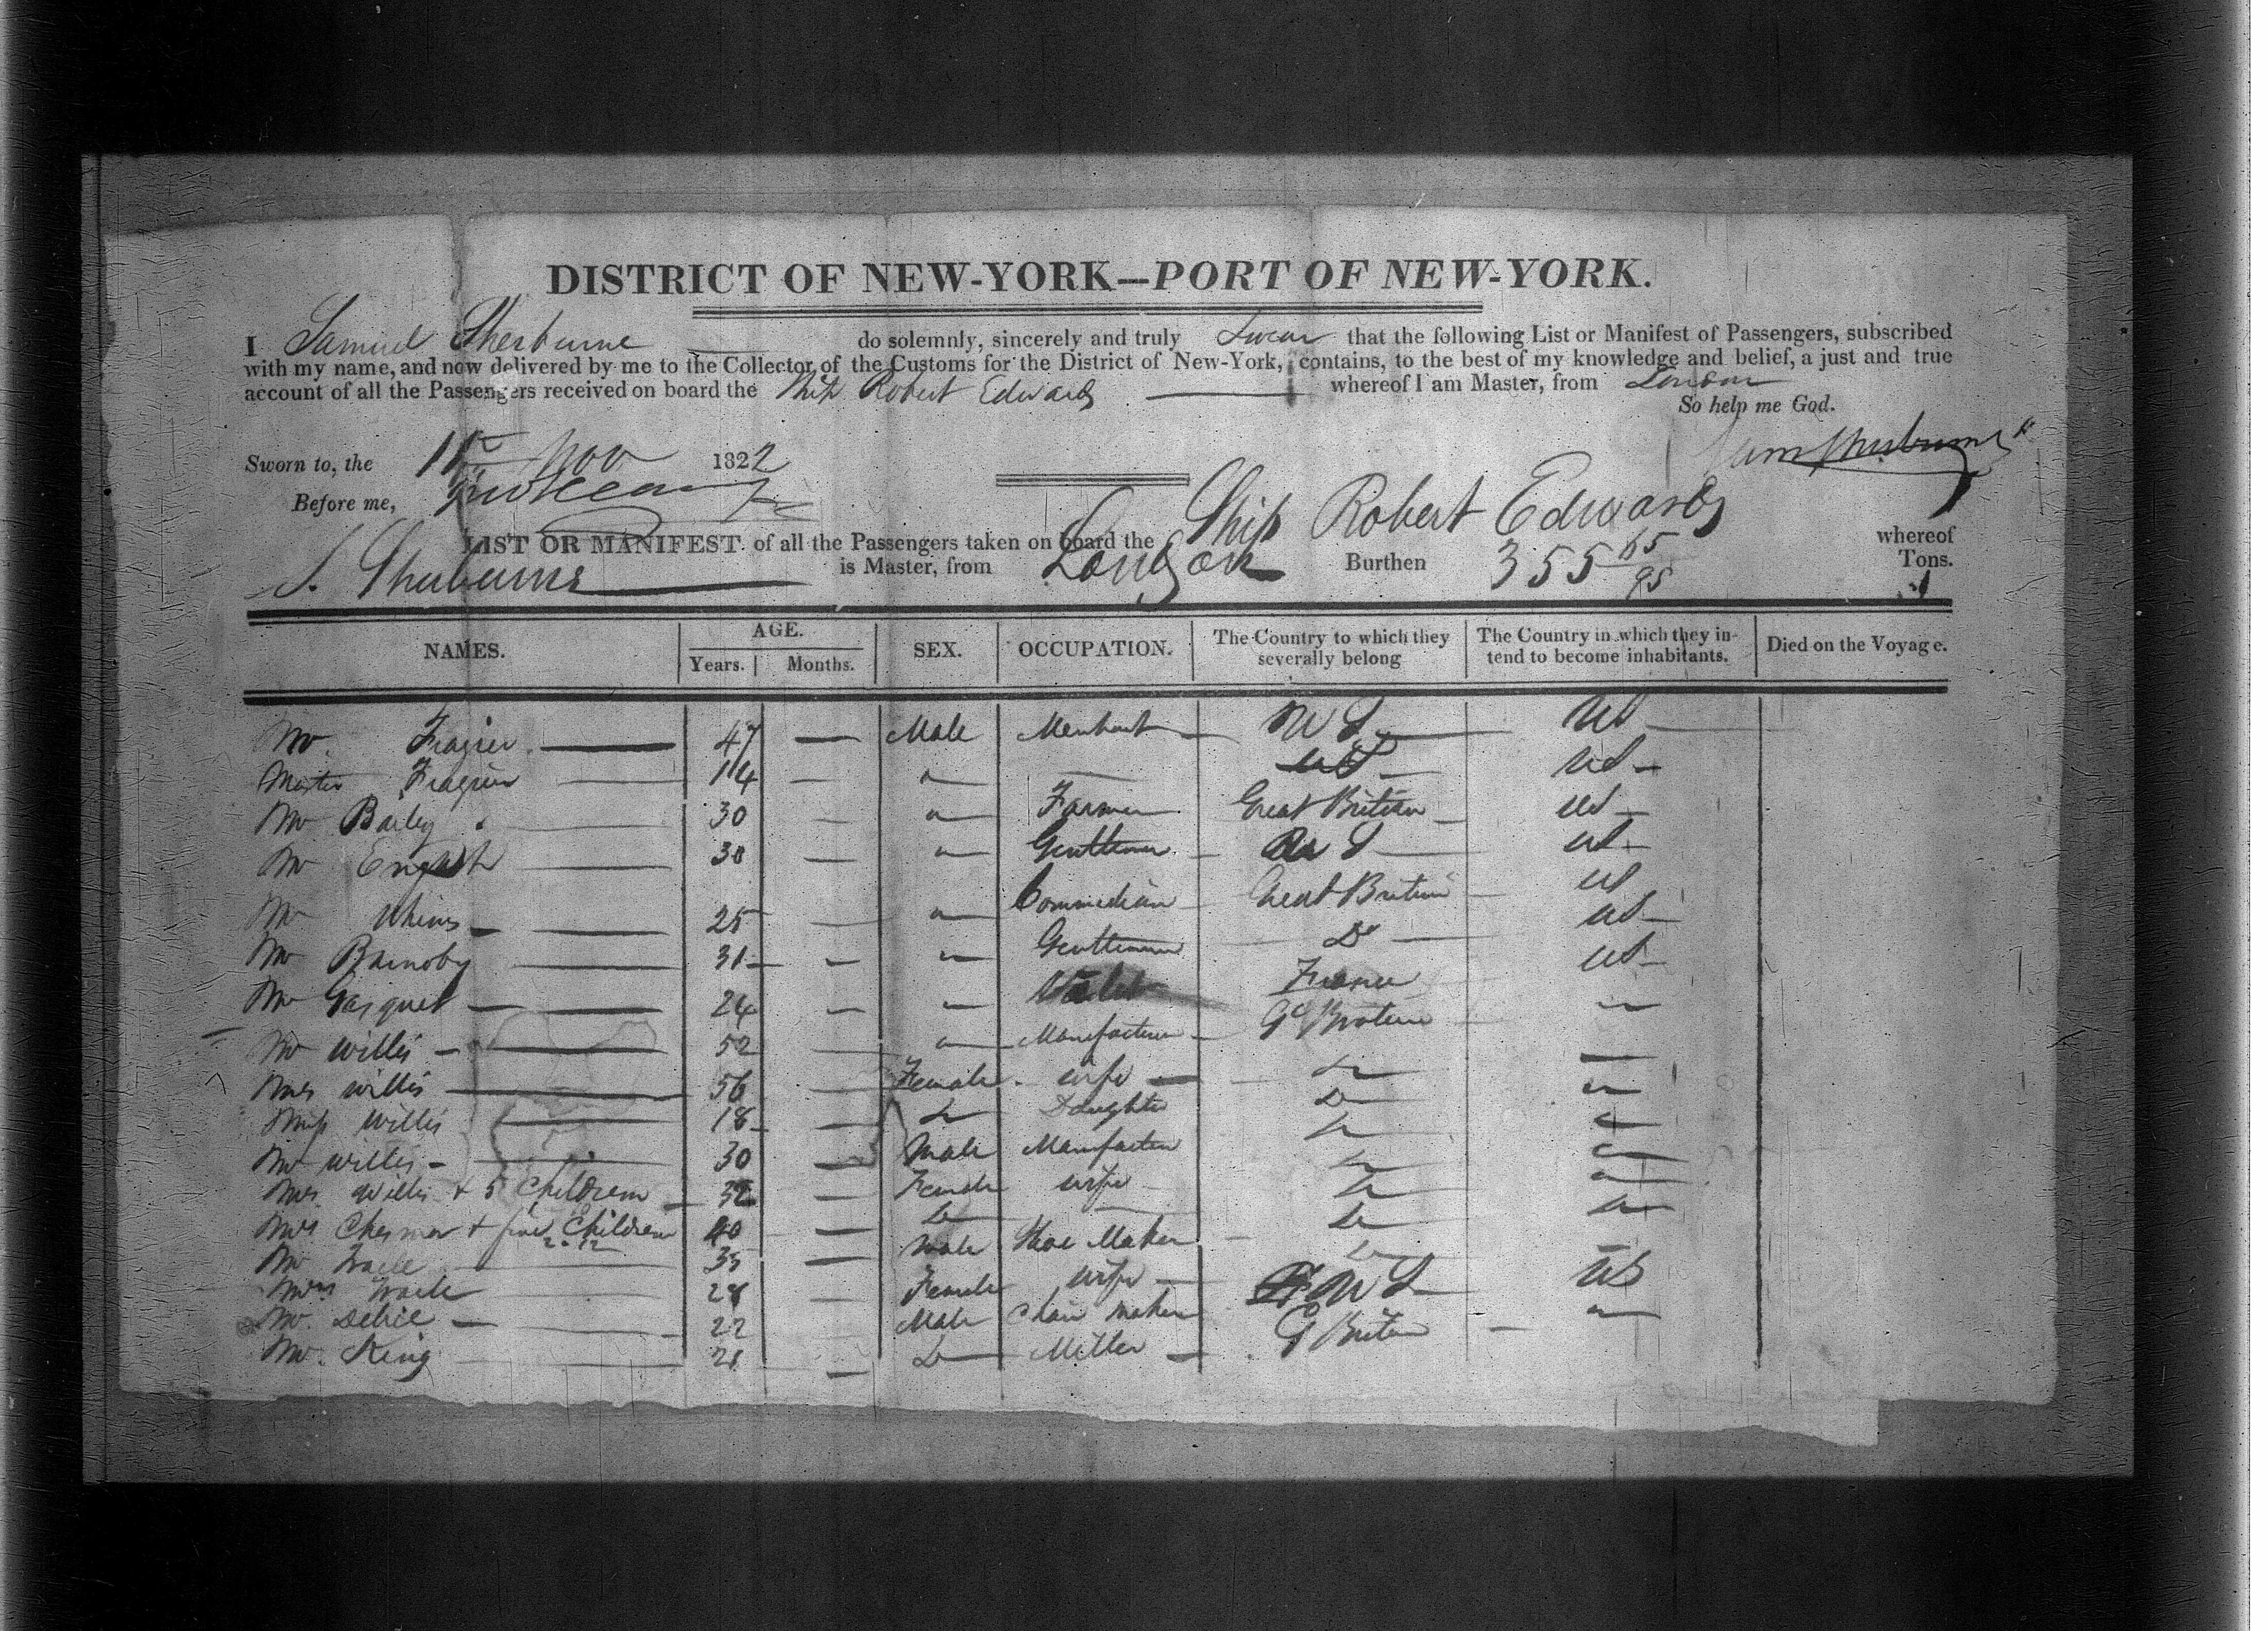 DISTRICT OF NEW-YORK—PORT OF NEW-YORK.
I Samuel Sherburne do solemnly, sincerely and truly Swear that the following List or Manifest of Passengers, subscribed
with my name, and now delivered by me to the Collector of the Customs for the District of New-York, contains, to the best of my knowledge and belief, a just and true
account of all the Passengers received on board the Ship Robert Edwards whereof I am Master, from London
So help me God.
Sam Sherburne
Sworn to, the Nov 1822
Before me,
LIST OR MANIFEST of all the Passengers taken on board the Ship Robert Edwards whereof
S. Sherburne is Master, from London Burthen 355 65/95 Tons.
NAMES. AGE. Years. Months. SEX. OCCUPATION. The Country to which they severally belong The Country in which they intend to become inhabitants. Died on the Voyage.
Mr. Frazier 47 — Male Merchant US US
Master Frazier 14 — " — US US
Mr Bailey 30 — " Farmer Great Britain US
Mr English 30 — " Gentleman US US
Mr 25 — " Commedian Great Britain US
Mr Barnoby 31 — " Gentleman Do US
Mr Gasquet 24 — " France US
Mr Willis 52 — " Manufacturer Gt Britain "
Mrs Willis 56 — Female wife Do —
Miss Willis 18 — Do Daughter Do "
Mr Willis 30 — Male Manufacturer Do "
Mrs Willis + 5 Children 32 — Female wife Do "
Mrs + five Children 40 — Do — Do "
Mr 35 — Male Shoe Maker Do "
Mrs 28 — Female wife Do —
Mr. 22 — Male Chair maker US US
Mr. King 21 — Do Miller G Britain "